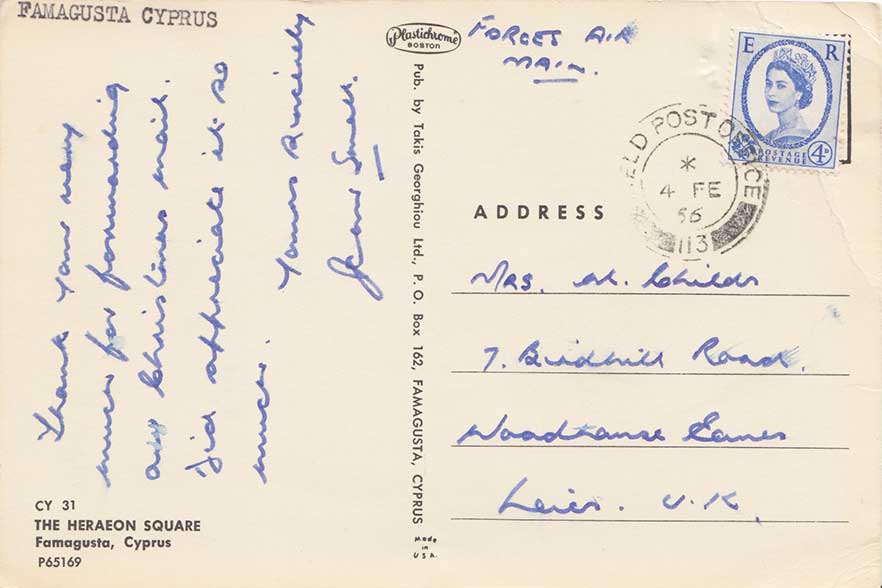 FAMAGUSTA CYPRUS
Thank you very
much for forwarding
my Christmas mail.
Did appreciate it so
much.
Yours sincerely
Small.
CY 31
THE HERAEON SQUARE
Famagusta, Cyprus
P65169
Plastichrome
BOSTON
Pub. by Takis Georghiou Ltd., P. O. Box 162, FAMAGUSTA, CYPRUS
Made
in
U.S.A.
FORCES AIR
MAIL.
E R
POSTAGE
REVENUE
4D
FIELD POST OFFICE
*
4 FE
56
113
ADDRESS
Mrs. M. Childs
7. Birdhill Road.
Woodhouse Eaves
Leics. U.K.